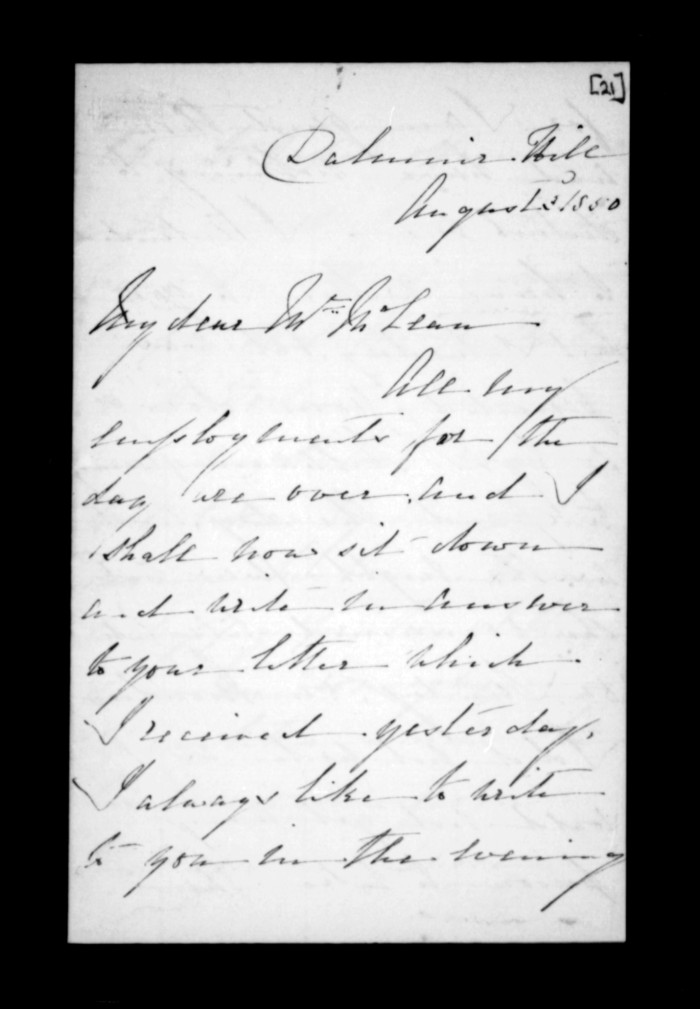 [21]
Dalmuir Hill
August 3 1850
My dear Mr McLean
All my
employments for the
day are over and I
shall now sit down
and write in answer
to your letter which
I received yesterday,
I always like to write
to you in the evening